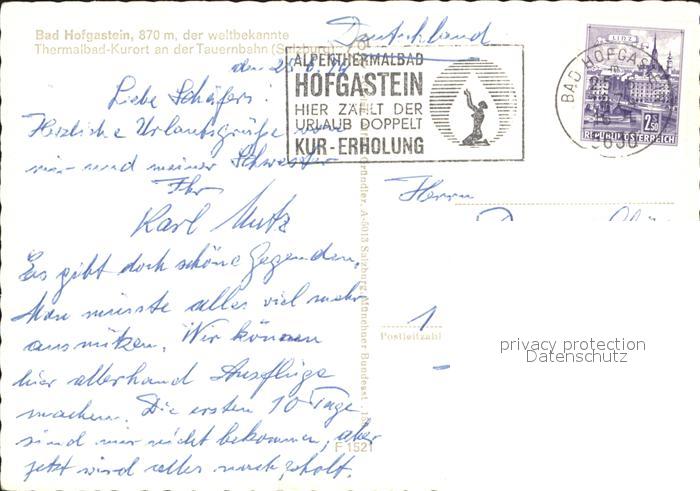 Bad Hofgastein, 870 m, der weltbekannte
Thermalbad-Kurort an der Tauernbahn (Salzburg)
Deutschland
den 25.
Liebe Schäfers!
Herzliche Urlaubsgrüße
von und meiner Schwester
Ihr
Karl Mutz
Es gibt doch schöne Gegenden,
Man müsste alles viel mehr
ausnützen. Wir können
hier allerhand Ausflüge
machen. Die ersten 10 Tage
sind mir nicht bekommen, aber
jetzt wird alles nachgeholt.
ALPENTHERMALBAD
HOFGASTEIN
HIER ZÄHLT DER
URLAUB DOPPELT
KUR-ERHOLUNG
LINZ
BAD HOFGAS
5630
2.50
REPUBLIK ÖSTERREICH
Herrn
1
Postleitzahl
A-5013 Salzburg, Münchner Bundesstr.
F 1521
privacy protection
Datenschutz